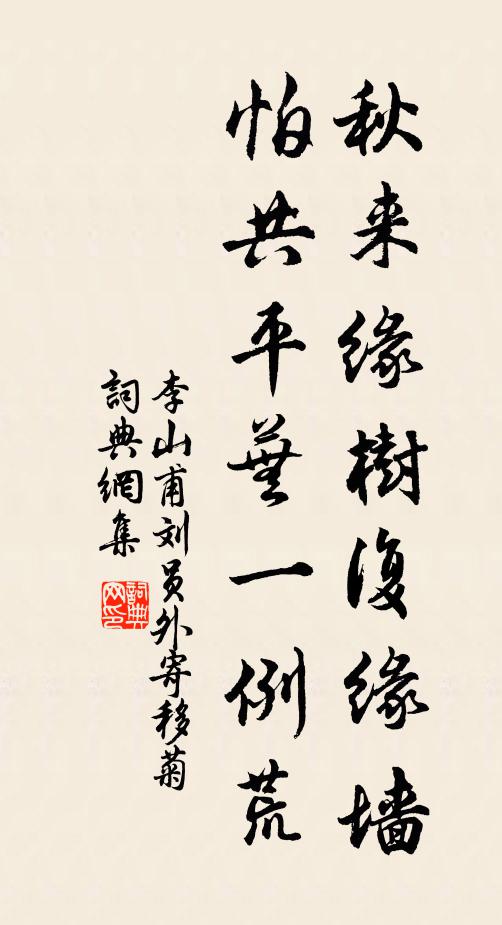 秋来缘樹復缘墙
怕共平蕪一例荒
李山甫刘员外寄移菊
詞典網集
詞典网印